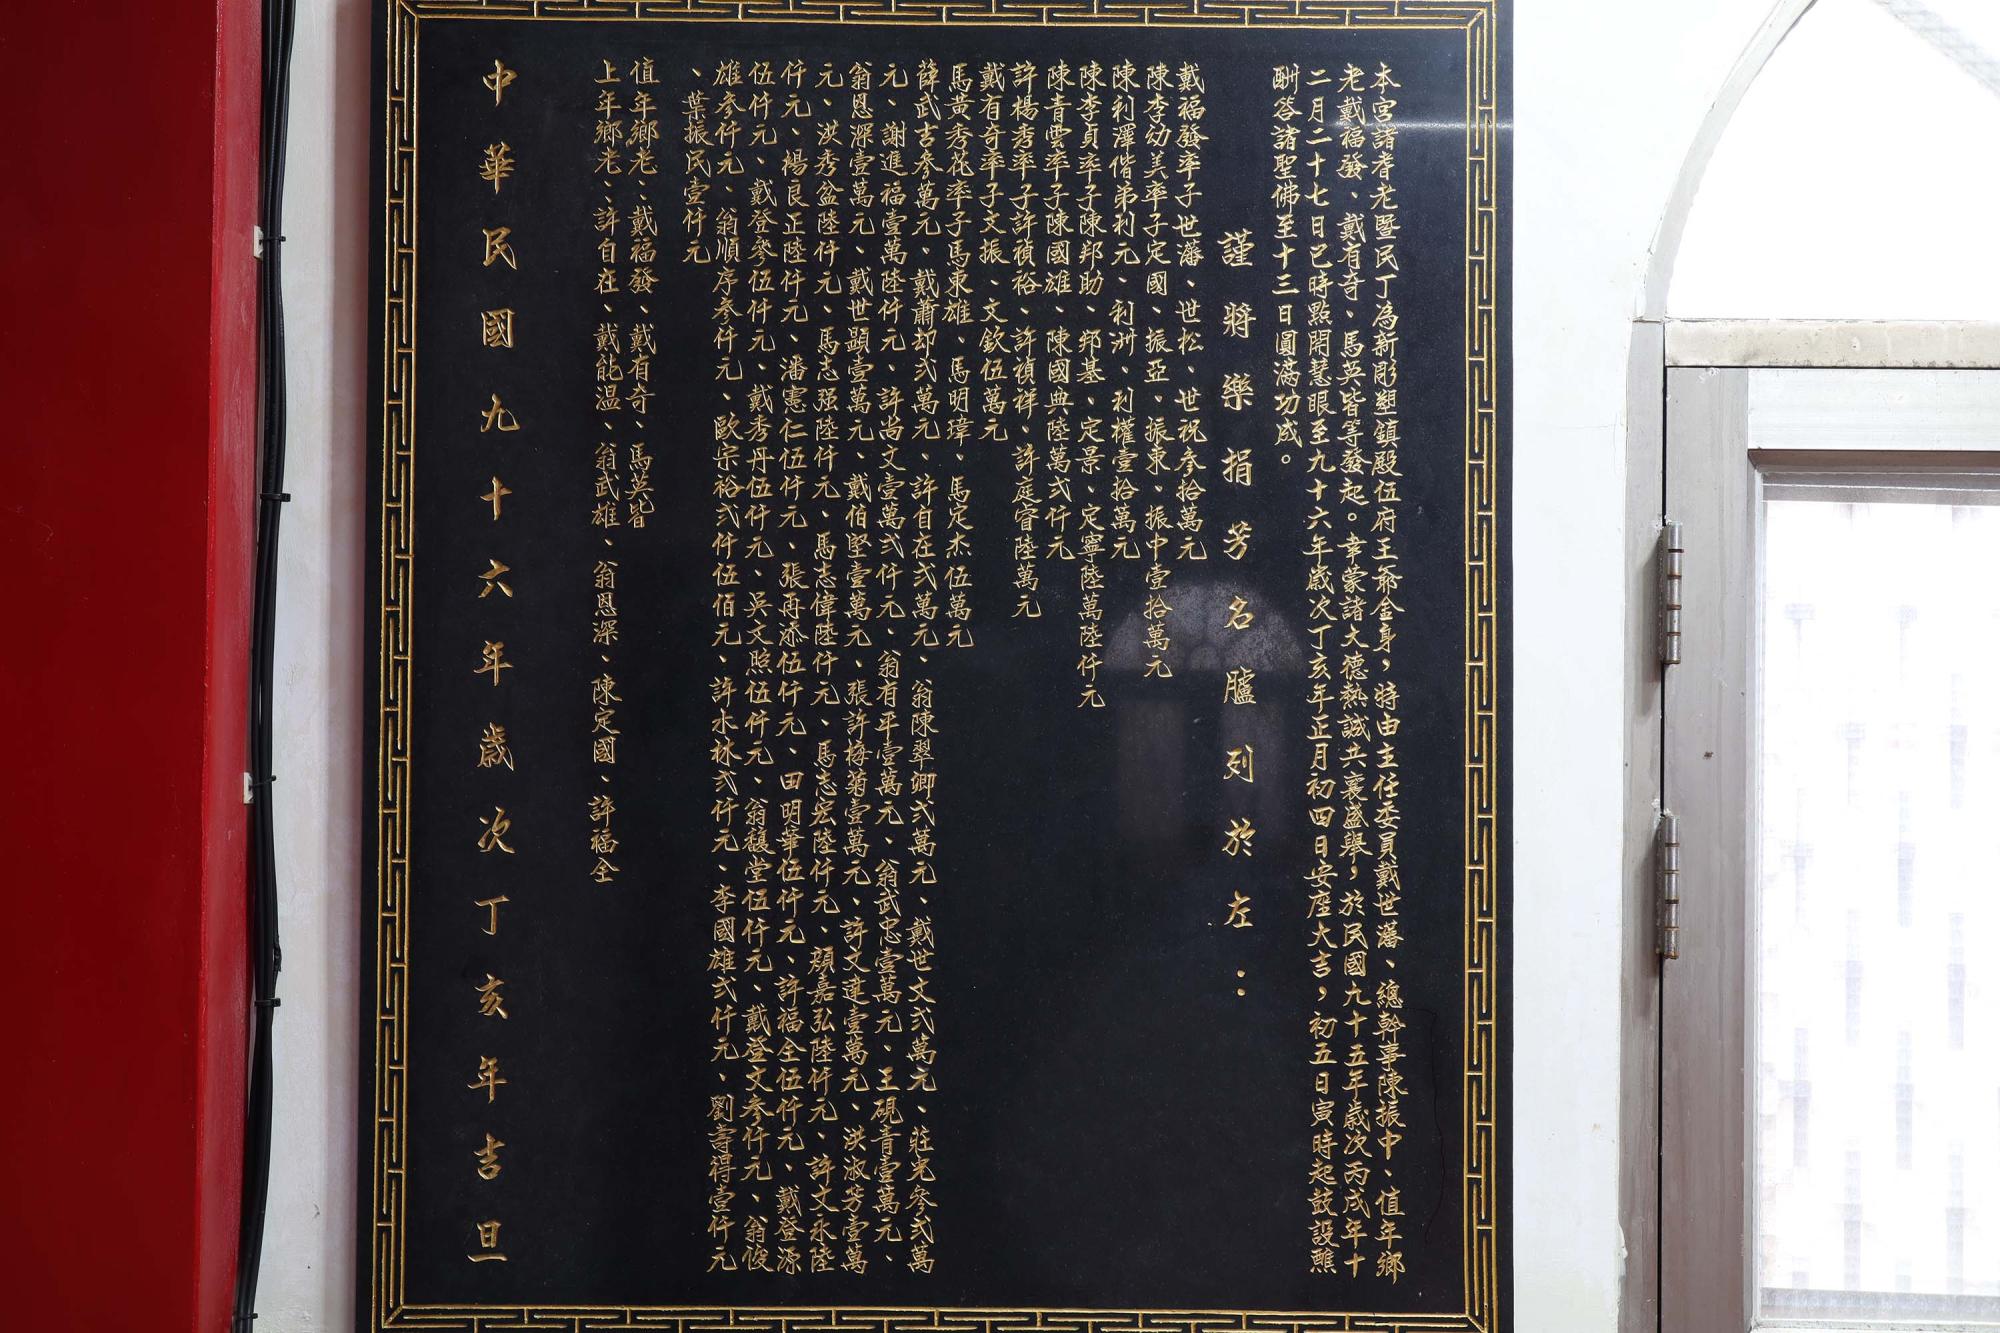 本宮諸耆老暨民丁為新彫塑鎮殿伍府王爺金身，特由主任委員戴世藩、總幹事陳振中、值年鄉
老戴福發、戴有奇、馬英皆等發起。幸蒙諸大德熱誠共襄盛舉，於民國九十五年歲次丙戌年十
二月二十七日巳時點開慧眼至九十六年歲次丁亥年正月初四日安座大吉，初五日寅時起鼓設醮
酬答諸聖佛至十三日圓滿功成。
謹將樂捐芳名臚列於左：
戴福發率子世藩、世松、世祝參拾萬元
陳李幼美率子定國、振亞、振東、振中壹拾萬元
陳利澤偕弟利元、利洲、利權壹拾萬元
陳李貞率子陳邦助、邦基、定景、定寧陸萬陸仟元
陳青雲率子陳國雄、陳國典陸萬弍仟元
許楊秀率子許禎裕、許禎祥、許庭睿陸萬元
戴有奇率子文振、文欽伍萬元
馬黃秀花率子馬東雄、馬明瑋、馬定杰伍萬元
薛武吉參萬元、戴蕭却弍萬元、許自在弍萬元、翁陳翠卿弍萬元、戴世文弍萬元、莊光參弍萬
元、謝進福壹萬陸仟元、許尚文壹萬弍仟元、翁有平壹萬元、翁武忠壹萬元、王硯音壹萬元、
翁恩深壹萬元、戴世顯壹萬元、戴伯堅壹萬元、張許梅菊壹萬元、許文建壹萬元、洪淑芳壹萬
元、洪秀盆陸仟元、馬志强陸仟元、馬志偉陸仟元、馬志宏陸仟元、顏嘉弘陸仟元、許文永陸
仟元、楊良正陸仟元、潘憲仁伍仟元、張再添伍仟元、田明華伍仟元、許福全伍仟元、戴登源
伍仟元、戴登參伍仟元、戴秀丹伍仟元、吳文照伍仟元、翁穠堂伍仟元、戴登文參仟元、翁俊
雄參仟元、翁順序參仟元、歐宗裕弍仟伍佰元、許水林弍仟元、李國雄弍仟元、劉壽得壹仟元
、葉振民壹仟元
值年鄉老：戴福發、戴有奇、馬英皆
上年鄉老：許自在、戴能溫、翁武雄、翁恩深、陳定國、許福全
中華民國九十六年歲次丁亥年吉旦